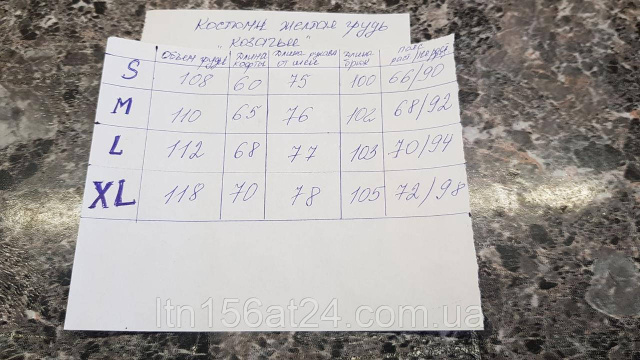 Костюмы желтая грудь
"Козатые"
Объем груди Длина кофты Длина рукава от шеи Длина брюк пояс
S 108 60 75 100 66/90
M 110 65 76 102 68/92
L 112 68 77 103 70/94
XL 118 70 78 105 72/98
ltn156at24.com.ua